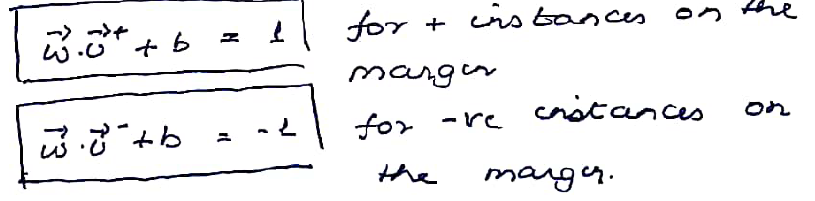 w⃗.v⃗⁺ + b = 1 for + instances on the
margin
w⃗.v⃗⁻ + b = -1 for -ve instances on
the margin.